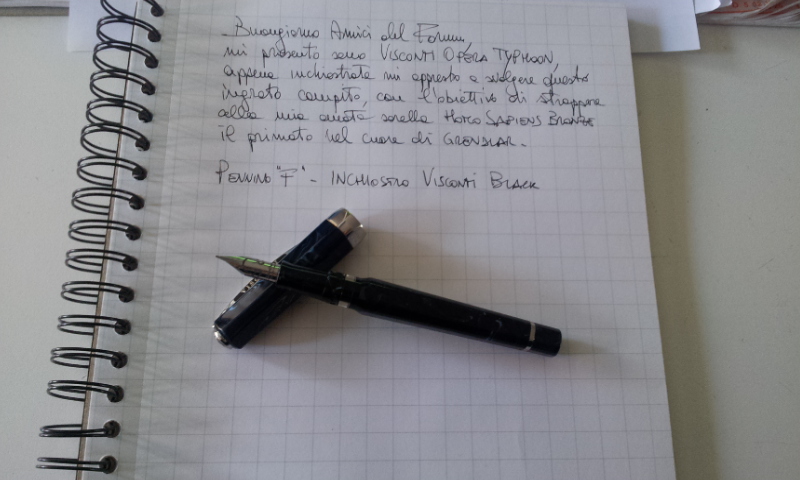 Buongiorno Amici del Forum,
mi presento sono VISCONTI OPERA TYPHOON,
appena inchiostrata mi appresto a svolgere questo
ingrato compito, con l'obiettivo di strappare
alla mia amata sorella HOMO SAPIENS BRONZE
il primato nel cuore di GRENDLAR.
PENNINO "F" - INCHIOSTRO VISCONTI BLACK